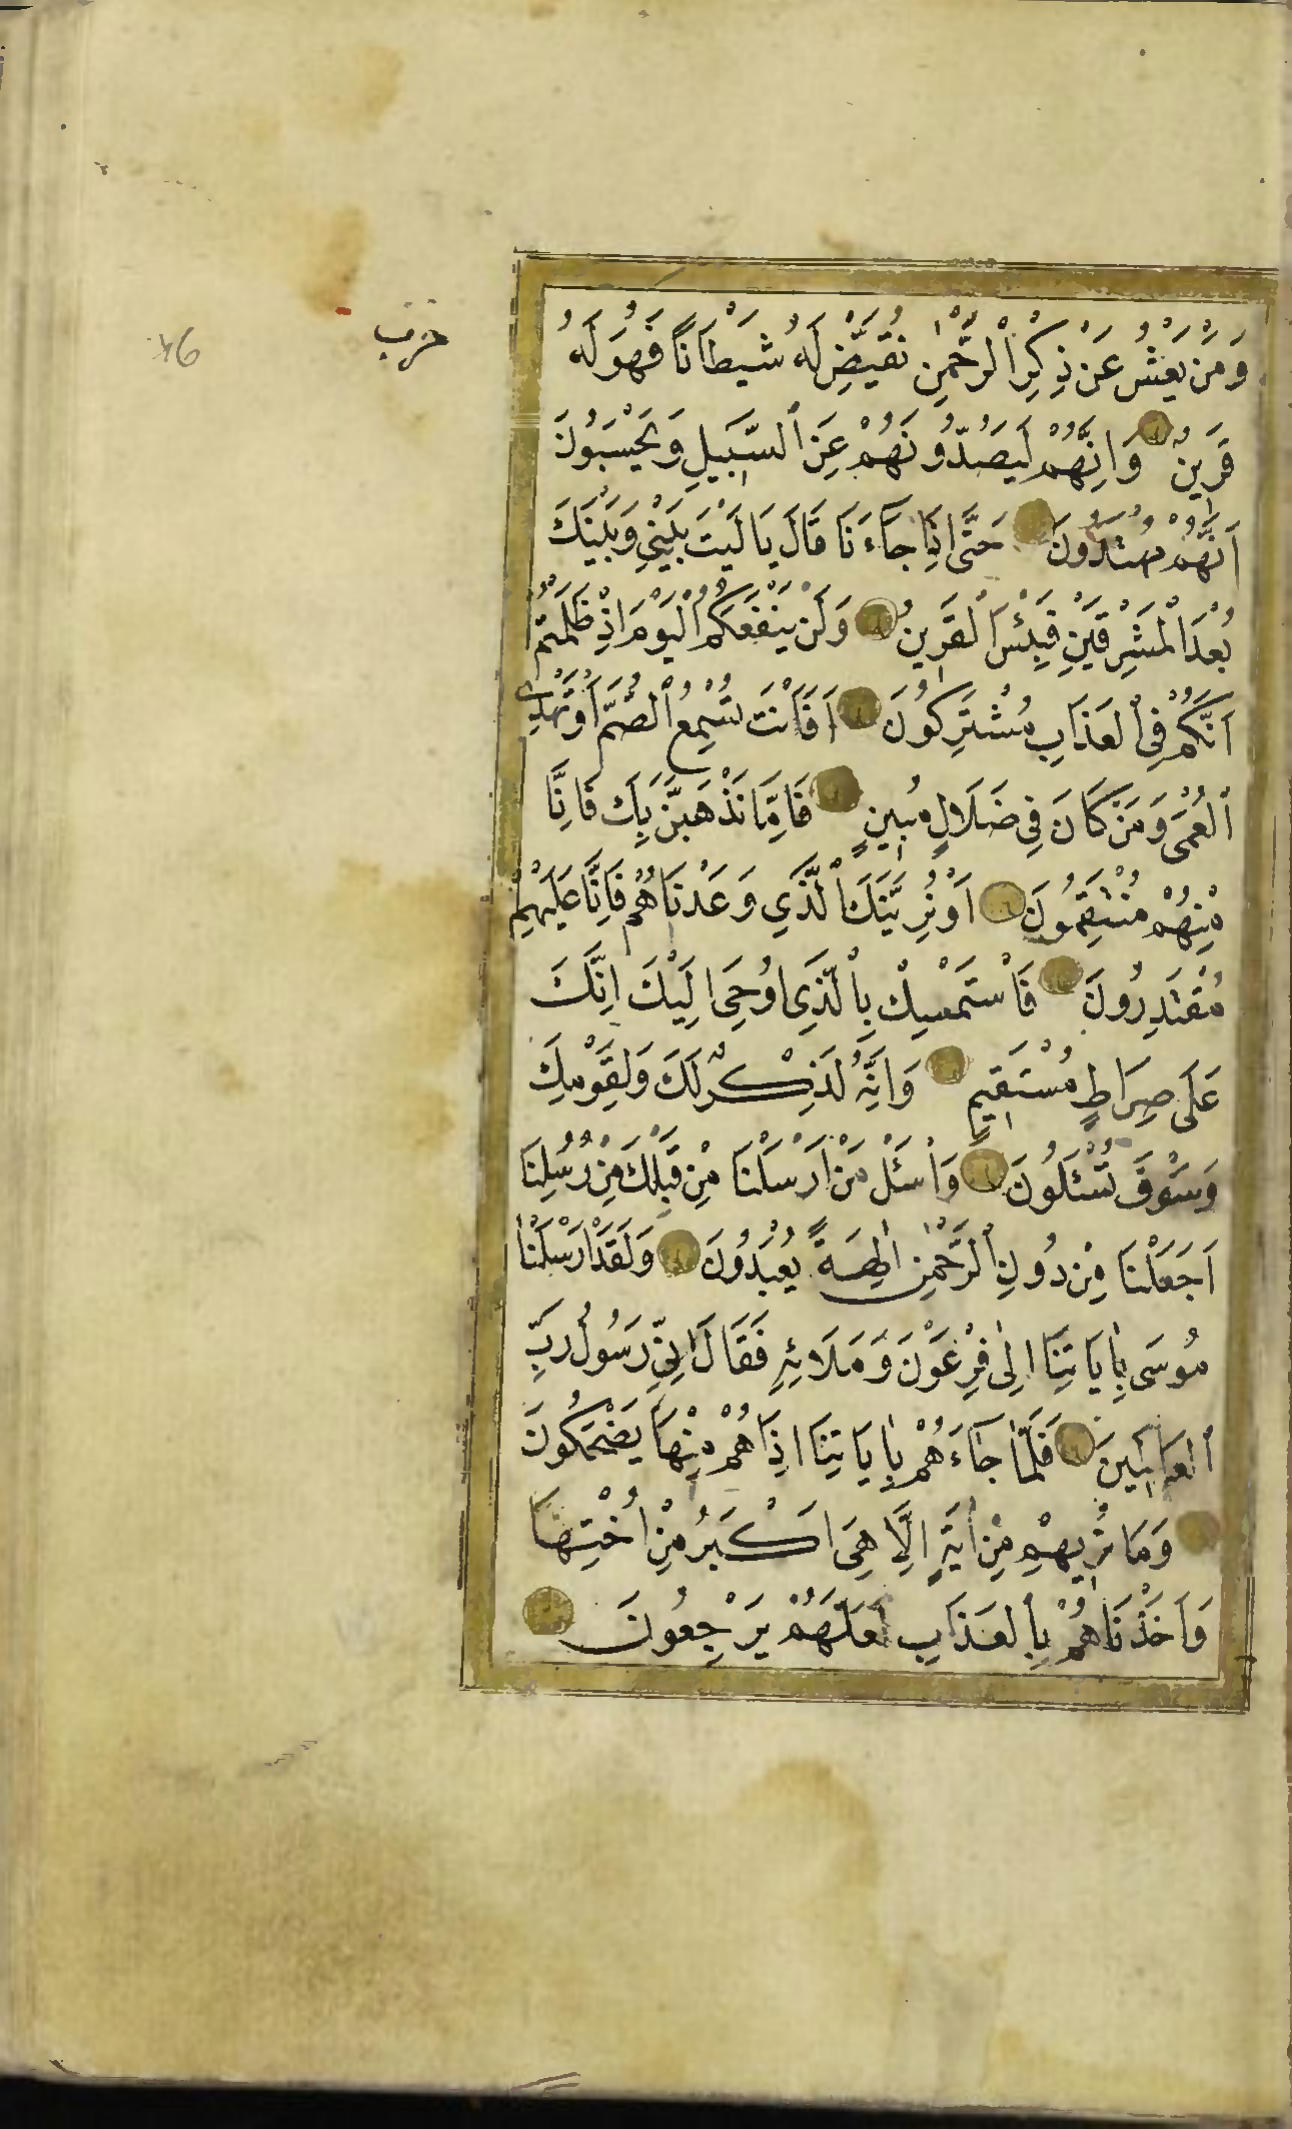 حزب
وَمَنْ يَعْشُ عَنْ ذِكْرِ الرَّحْمٰنِ نُقَيِّضْ لَهُ شَيْطَانًا فَهُوَ لَهُ
قَرِينٌ وَاِنَّهُمْ لَيَصُدُّونَهُمْ عَنِ السَّبِيلِ وَيَحْسَبُونَ
اَنَّهُمْ مُهْتَدُونَ حَتَّى اِذَا جَاءَنَا قَالَ يَا لَيْتَ بَيْنِي وَبَيْنَكَ
بُعْدَ الْمَشْرِقَيْنِ فَبِئْسَ الْقَرِينُ وَلَنْ يَنْفَعَكُمُ الْيَوْمَ اِذْ ظَلَمْتُمْ
اَنَّكُمْ فِي الْعَذَابِ مُشْتَرِكُونَ اَفَاَنْتَ تُسْمِعُ الصُّمَّ اَوْ تَهْدِي
الْعُمْيَ وَمَنْ كَانَ فِي ضَلَالٍ مُبِينٍ فَاِمَّا نَذْهَبَنَّ بِكَ فَاِنَّا
مِنْهُمْ مُنْتَقِمُونَ اَوْ نُرِيَنَّكَ الَّذِي وَعَدْنَاهُمْ فَاِنَّا عَلَيْهِمْ
مُقْتَدِرُونَ فَاسْتَمْسِكْ بِالَّذِي اُوحِيَ اِلَيْكَ اِنَّكَ
عَلَى صِرَاطٍ مُسْتَقِيمٍ وَاِنَّهُ لَذِكْرٌ لَكَ وَلِقَوْمِكَ
وَسَوْفَ تُسْئَلُونَ وَاسْئَلْ مَنْ اَرْسَلْنَا مِنْ قَبْلِكَ مِنْ رُسُلِنَا
اَجَعَلْنَا مِنْ دُونِ الرَّحْمٰنِ اٰلِهَةً يُعْبَدُونَ وَلَقَدْ اَرْسَلْنَا
مُوسَى بِاٰيَاتِنَا اِلٰى فِرْعَوْنَ وَمَلَائِهِ فَقَالَ اِنِّي رَسُولُ رَبِّ
الْعَالَمِينَ فَلَمَّا جَاءَهُمْ بِاٰيَاتِنَا اِذَا هُمْ مِنْهَا يَضْحَكُونَ
وَمَا نُرِيهِمْ مِنْ اٰيَةٍ اِلَّا هِيَ اَكْبَرُ مِنْ اُخْتِهَا
وَاَخَذْنَاهُمْ بِالْعَذَابِ لَعَلَّهُمْ يَرْجِعُونَ